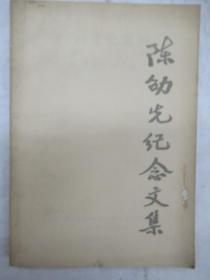 陈幼先纪念文集